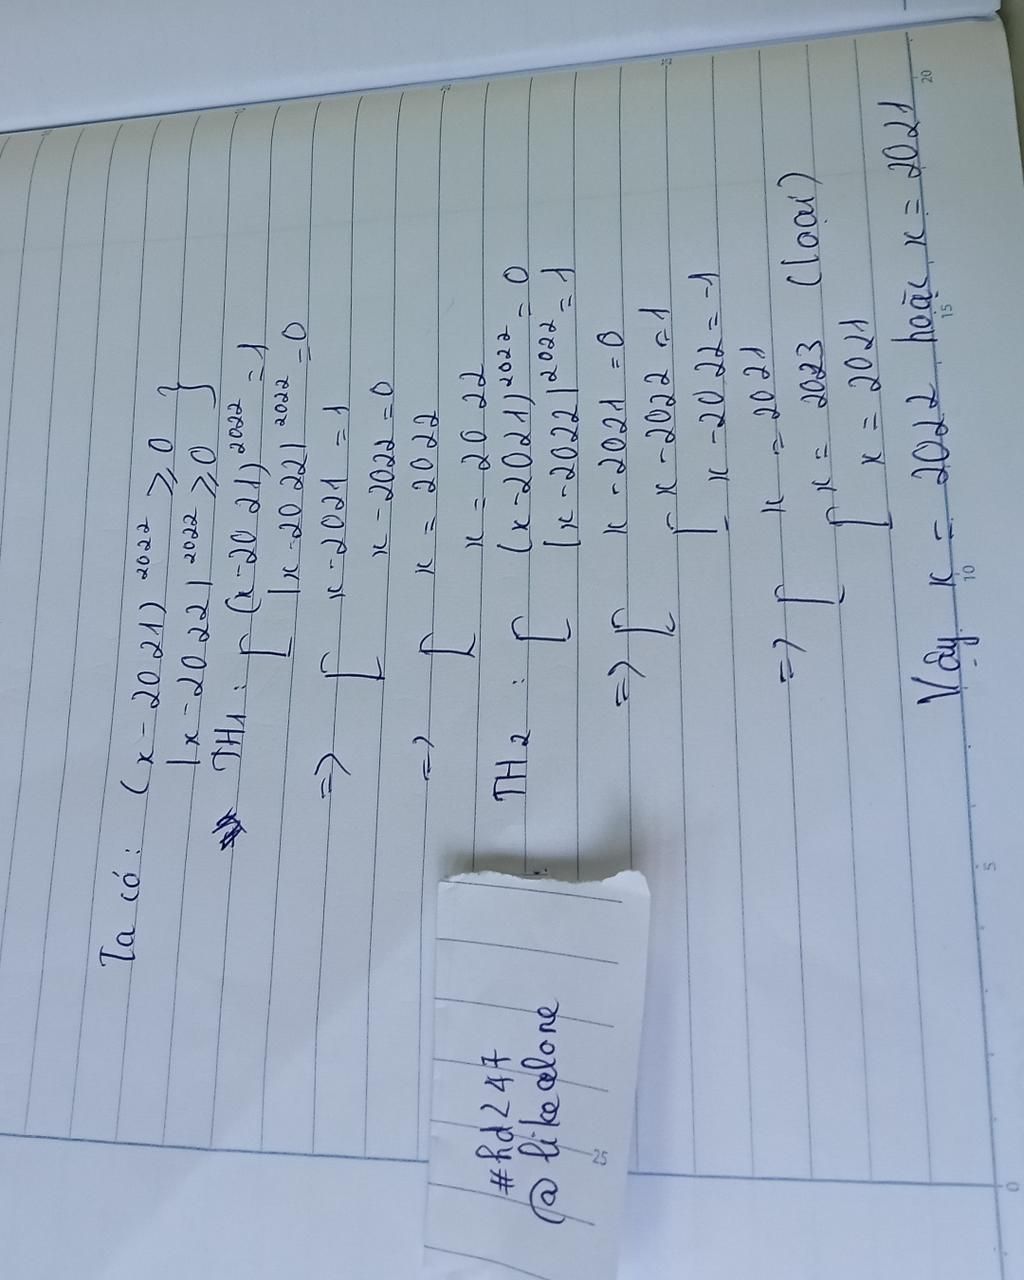 Ta có: (x-2021)²⁰²² ≥ 0 }
|x-2022|²⁰²² ≥ 0
TH1: [ (x-2021)²⁰²² = 1
|x-2022|²⁰²² = 0
=> [ x-2021 = 1
x-2022 = 0
=> [ x = 2022
x = 2022
TH2: [ (x-2021)²⁰²² = 0
|x-2022|²⁰²² = 1
=> [ x-2021 = 0
[ x-2022 = 1
x-2022 = -1
=> [ x = 2021
[ x = 2023 (loại)
x = 2021
Vậy x = 2022 hoặc x = 2021
#hd247
@likealone
25
0
5
10
15
20